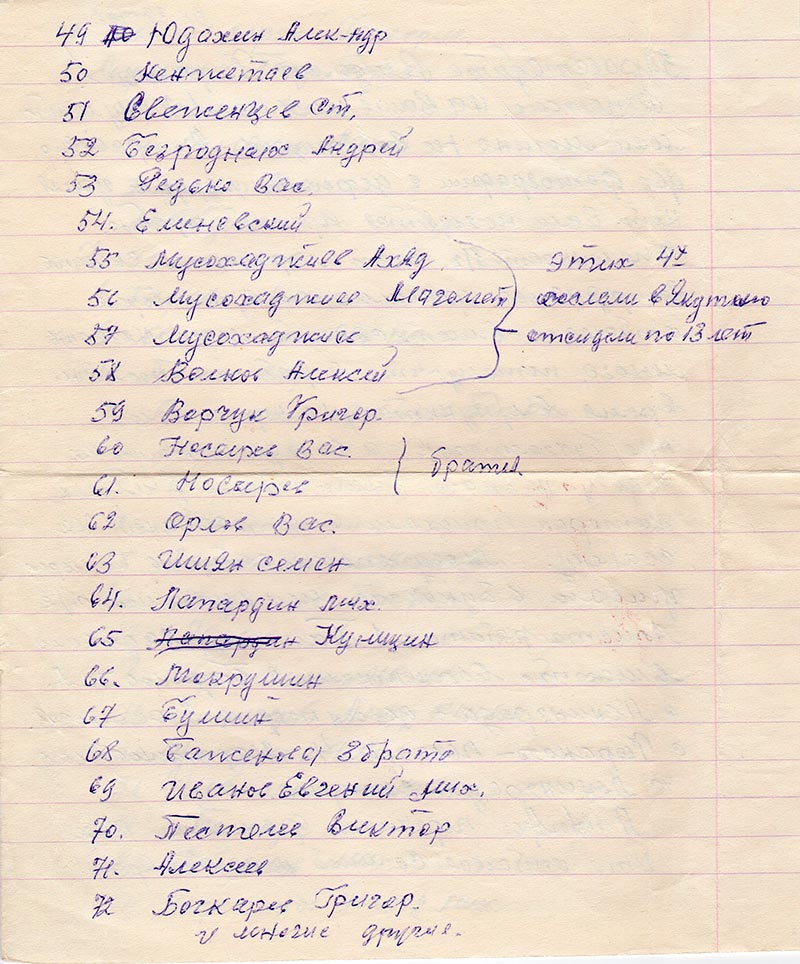 49 Юдахин Алек-ндр
50 Кенжетаев
51 Свеженцев Ст.
52 Безродных Андрей
53 Редько Вас.
54. Елиневский
55 Мусохаджиев Ахад
этих 4х
56 Мусохаджиев Магомет
сослали в Якутию
57 Мусохаджиев
отсидели по 13 лет
58 Волков Алексей
59 Варчук Григор.
60 Носырев Вас.
братья
61. Носырев
62 Орлов Вас.
63 Шиян семен
64. Папардин Мих.
65 Папардин Куницин
66. Мокрушин
67 Бушин
68 Баженова 3 брата
69 Иванов Евгений Мих.
70. Виктор
71. Алексеев
72 Бочкарев Григор.
и многие другие.